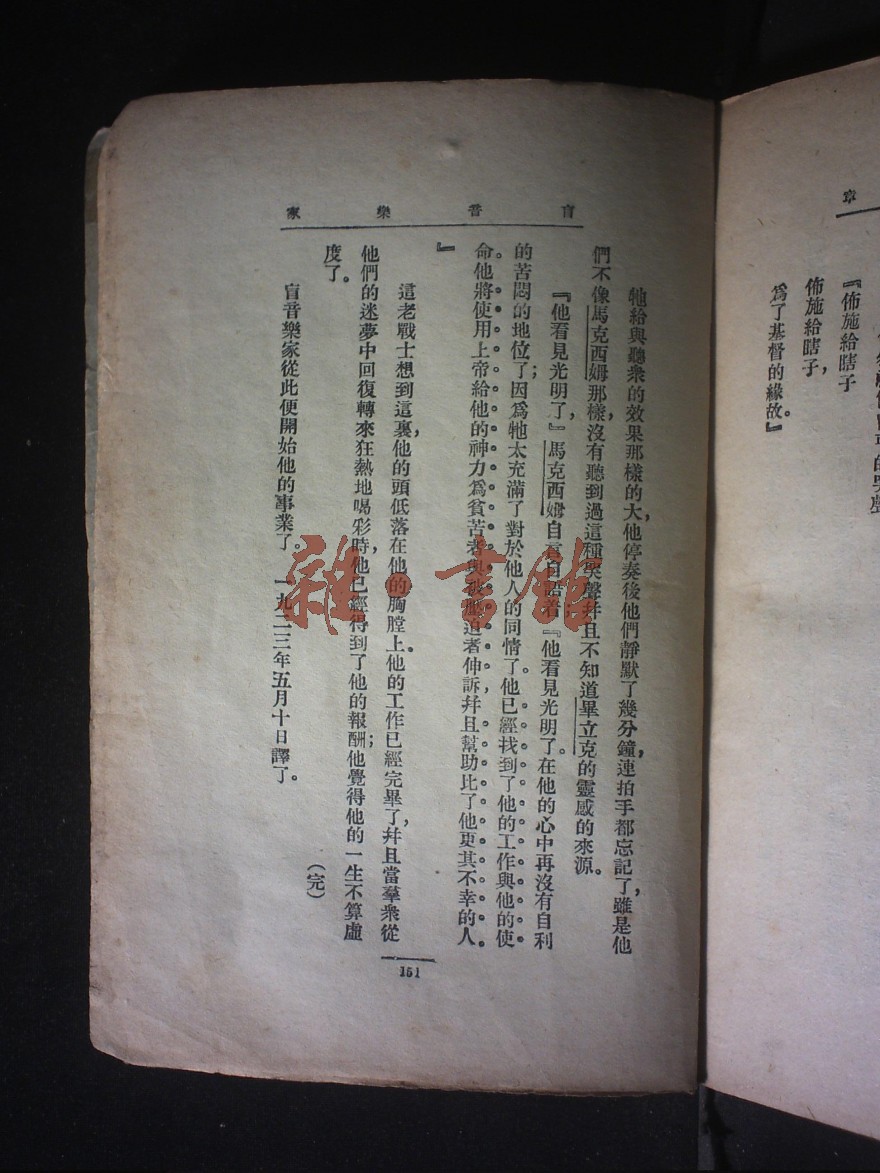 章
『佈施給瞎子
佈施給瞎子，
爲了基督的緣故。』
盲音樂家
牠給與聽衆的效果那樣的大，他停奏後他們靜默了幾分鐘，連拍手都忘記了，雖是他
們不像馬克西姆那樣，沒有聽到過這種哭聲幷且不知道畢立克的靈感的來源。
『他看見光明了，』馬克西姆自言自語着『他看見光明了。在他的心中再沒有自利
的苦悶的地位了；因爲牠太充滿了對於他人的同情了。他已經找到了他的工作與他的使
命。他將使用上帝給他的神力爲貧苦者與被壓迫者伸訴，幷且幫助比了他更其不幸的人。
』
這老戰士想到這裏，他的頭低落在他的胸膛上。他的工作已經完畢了，幷且當羣衆從
他們的迷夢中回復轉來狂熱地喝彩時，他已經得到了他的報酬；他覺得他的一生不算虛
度了。
（完）
盲音樂家從此便開始他的事業了。 一九二三年五月十日譯了。
151
雜·書館